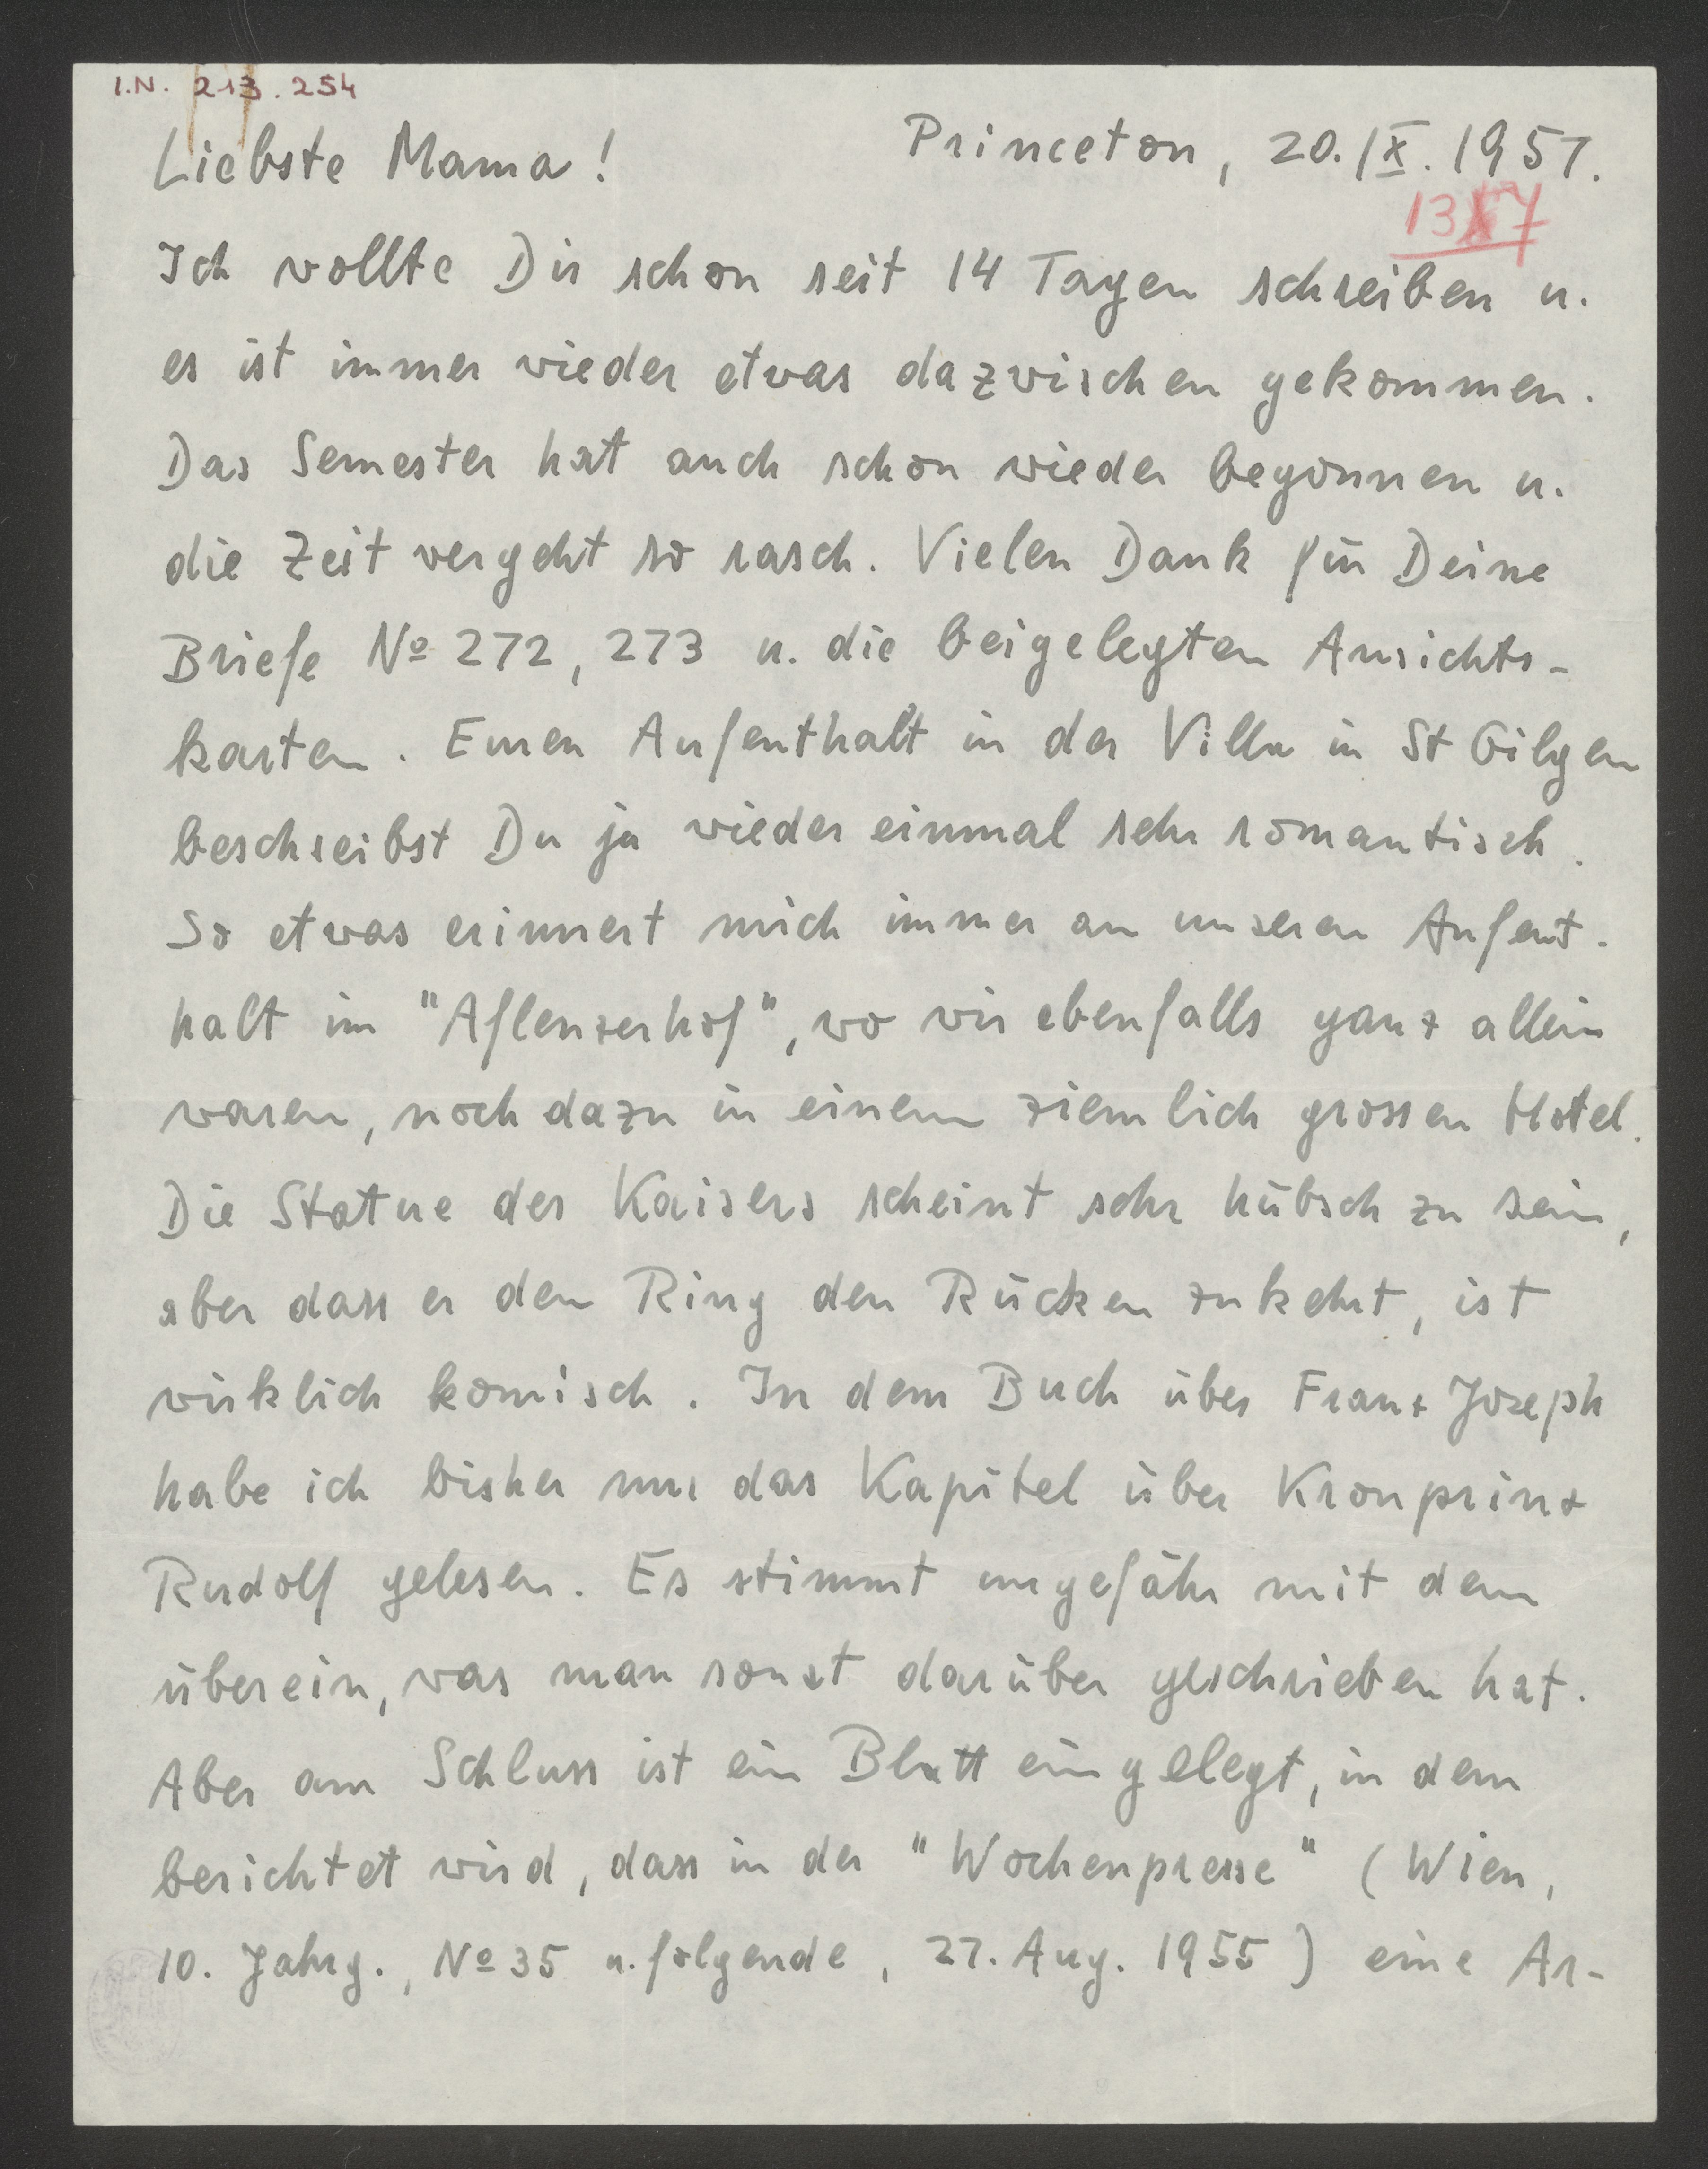 I.N. 213.254
Liebste Mama! Princeton, 20./IX. 1957.
137
Ich wollte Dir schon seit 14 Tagen schreiben u.
es ist immer wieder etwas dazwischen gekommen.
Das Semester hat auch schon wieder begonnen u.
die Zeit vergeht so rasch. Vielen Dank für Deine
Briefe No 272, 273 u. die beigelegten Ansichts-
karten. Euren Aufenthalt in der Villa in St Gilgen
beschreibst Du ja wieder einmal sehr romantisch.
So etwas erinnert mich immer an unseren Aufent-
halt im "Aflenzerhof", wo wir ebenfalls ganz allein
waren, noch dazu in einem ziemlich grossen Hotel.
Die Statue des Kaisers scheint sehr hübsch zu sein,
aber dass er dem Ring den Rücken zukehrt, ist
wirklich komisch. In dem Buch über Franz Joseph
habe ich bisher nur das Kapitel über Kronprinz
Rudolf gelesen. Es stimmt ungefähr mit dem
überein, was man sonst darüber geschrieben hat.
Aber am Schluss ist ein Blatt eingelegt, in dem
berichtet wird, dass in der "Wochenpresse" (Wien,
10. Jahrg., No 35 u. folgende, 27. Aug. 1955) eine Ar-